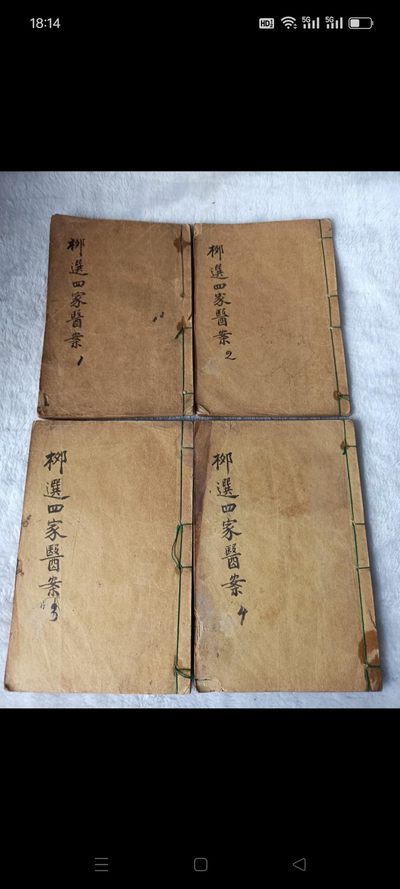 18:14
HD
5G
5G
柳選四家醫案
1
柳選四家醫案
2
柳選四家醫案
3
柳選四家醫案
4